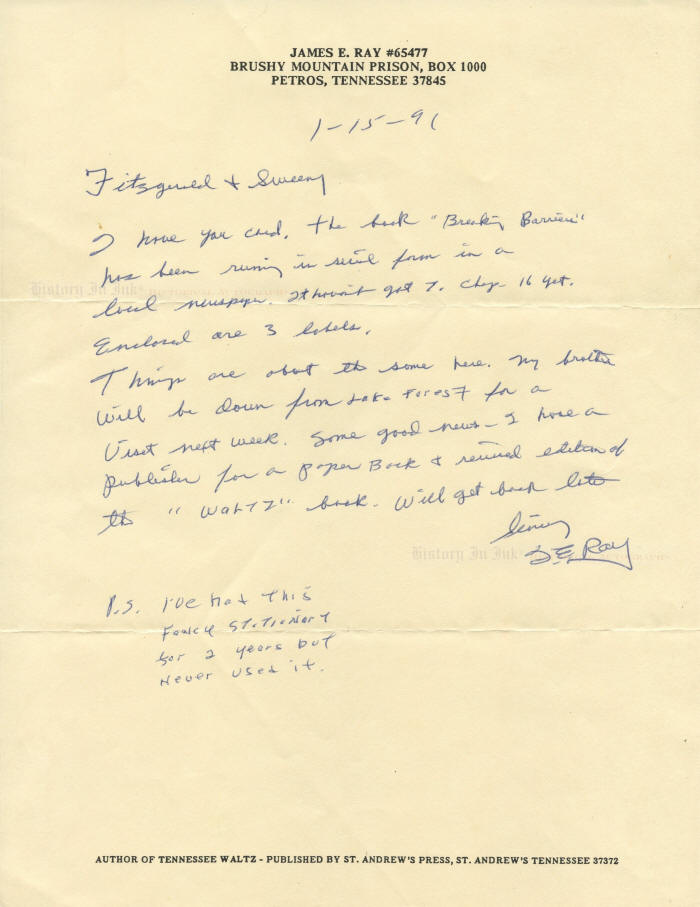 JAMES E. RAY #65477
BRUSHY MOUNTAIN PRISON, BOX 1000
PETROS, TENNESSEE 37845
1-15-91
Fitzgerald & Sweeny
I have your card. The book "Breaking Barriers"
has been running in serial form in a
History In Ink
local newspaper. It hasn't got 7. Chap 16 yet.
Enclosed are 3 labels.
Things are about the same here. My brother
will be down from Lake Forest for a
Visit next week. Some good news - I have a
publisher for a paper Back & revised edition of
the "WALTZ" book. Will get back later
Sincerely
History In Ink
J E Ray
P.S. I've had This
Fancy Stationary
for 2 years but
Never used it.
AUTHOR OF TENNESSEE WALTZ - PUBLISHED BY ST. ANDREW'S PRESS, ST. ANDREW'S TENNESSEE 37372